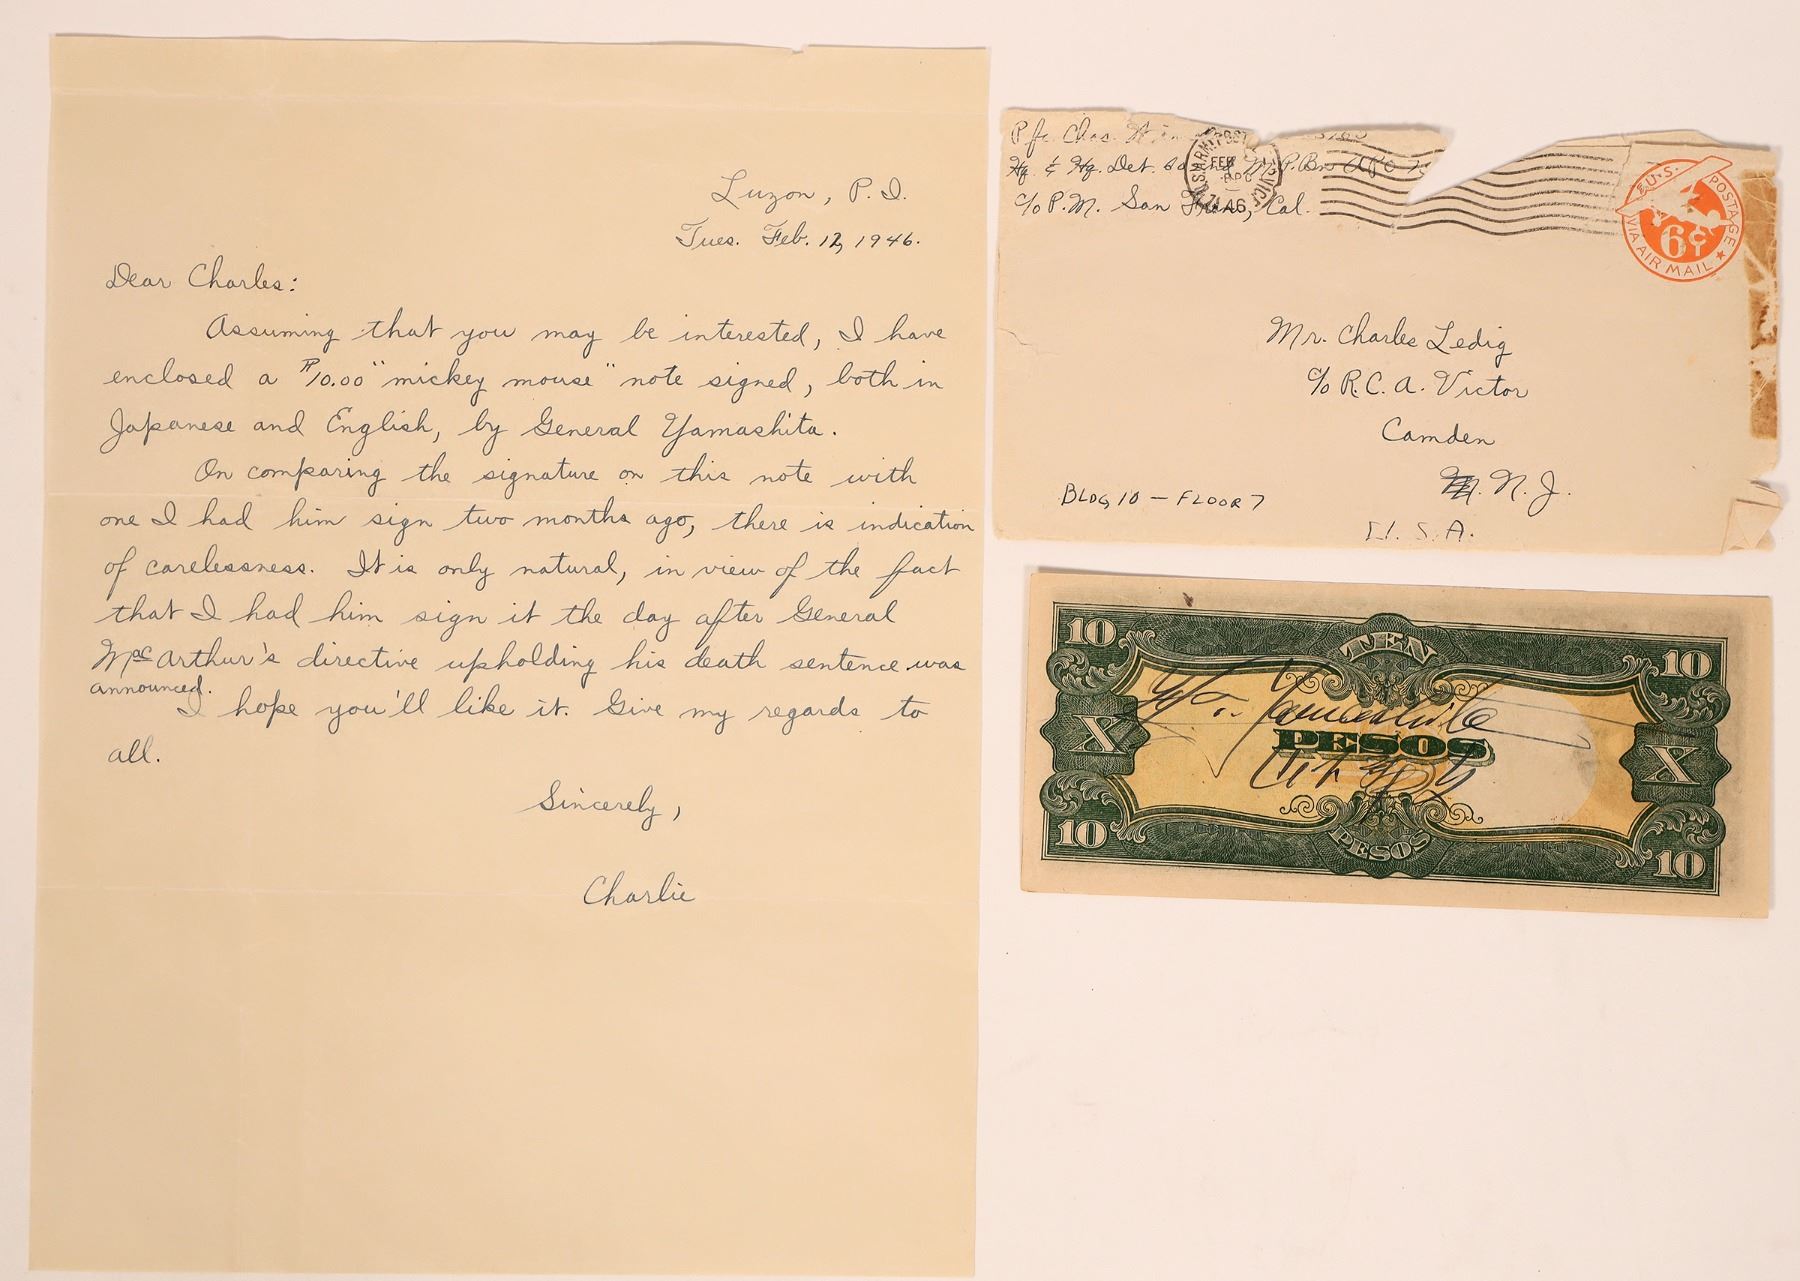 Luzon, P. I.
Tues. Feb. 12, 1946.
Dear Charles:
Assuming that you may be interested, I have
enclosed a ₱10.00 "mickey mouse" note signed, both in
Japanese and English, by General Yamashita.
On comparing the signature on this note with
one I had him sign two months ago, there is indication
of carelessness. It is only natural, in view of the fact
that I had him sign it the day after General
MacArthur's directive upholding his death sentence was
announced.
I hope you'll like it. Give my regards to
all.
Sincerely,
Charlie
Pfc. Chas.
Hq. & Hq. Det. M.P. Bn APO
c/o P.M. San Fran, Cal.
U.S. ARMY POSTAL SERVICE
FEB
46
U.S. POSTAGE
6¢
VIA AIR MAIL
Mr. Charles Ledig
c/o R.C.A. Victor
Camden
N. J.
BLDG 10 — FLOOR 7
U. S. A.
10 TEN 10
Yamashita
X PESOS X
10 PESOS 10